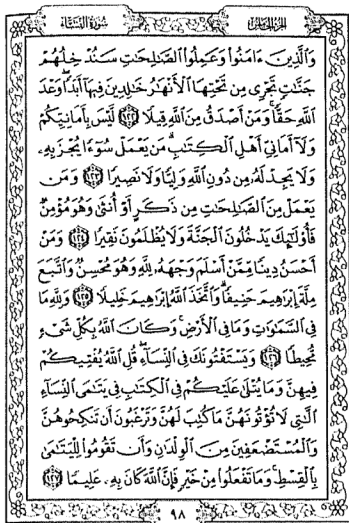 الجزء الخامس سورة النساء
وَالَّذِينَ ءَامَنُوا وَعَمِلُوا الصَّٰلِحَٰتِ سَنُدْخِلُهُمْ
جَنَّٰتٍ تَجْرِى مِن تَحْتِهَا الْأَنْهَٰرُ خَٰلِدِينَ فِيهَآ أَبَدًا وَعْدَ
اللَّهِ حَقًّا وَمَنْ أَصْدَقُ مِنَ اللَّهِ قِيلًا ١٢٢ لَّيْسَ بِأَمَانِيِّكُمْ
وَلَآ أَمَانِىِّ أَهْلِ الْكِتَٰبِ مَن يَعْمَلْ سُوٓءًا يُجْزَ بِهِۦ
وَلَا يَجِدْ لَهُۥ مِن دُونِ اللَّهِ وَلِيًّا وَلَا نَصِيرًا ١٢٣ وَمَن
يَعْمَلْ مِنَ الصَّٰلِحَٰتِ مِن ذَكَرٍ أَوْ أُنثَىٰ وَهُوَ مُؤْمِنٌ
فَأُولَٰٓئِكَ يَدْخُلُونَ الْجَنَّةَ وَلَا يُظْلَمُونَ نَقِيرًا ١٢٤ وَمَنْ
أَحْسَنُ دِينًا مِّمَّنْ أَسْلَمَ وَجْهَهُۥ لِلَّهِ وَهُوَ مُحْسِنٌ وَاتَّبَعَ
مِلَّةَ إِبْرَٰهِيمَ حَنِيفًا وَاتَّخَذَ اللَّهُ إِبْرَٰهِيمَ خَلِيلًا ١٢٥ وَلِلَّهِ مَا
فِى السَّمَٰوَٰتِ وَمَا فِى الْأَرْضِ وَكَانَ اللَّهُ بِكُلِّ شَىْءٍ
مُّحِيطًا ١٢٦ وَيَسْتَفْتُونَكَ فِى النِّسَآءِ قُلِ اللَّهُ يُفْتِيكُمْ
فِيهِنَّ وَمَا يُتْلَىٰ عَلَيْكُمْ فِى الْكِتَٰبِ فِى يَتَٰمَى النِّسَآءِ
الَّٰتِى لَا تُؤْتُونَهُنَّ مَا كُتِبَ لَهُنَّ وَتَرْغَبُونَ أَن تَنكِحُوهُنَّ
وَالْمُسْتَضْعَفِينَ مِنَ الْوِلْدَٰنِ وَأَن تَقُومُوا لِلْيَتَٰمَىٰ
بِالْقِسْطِ وَمَا تَفْعَلُوا مِنْ خَيْرٍ فَإِنَّ اللَّهَ كَانَ بِهِۦ عَلِيمًا ١٢٧
٩٨